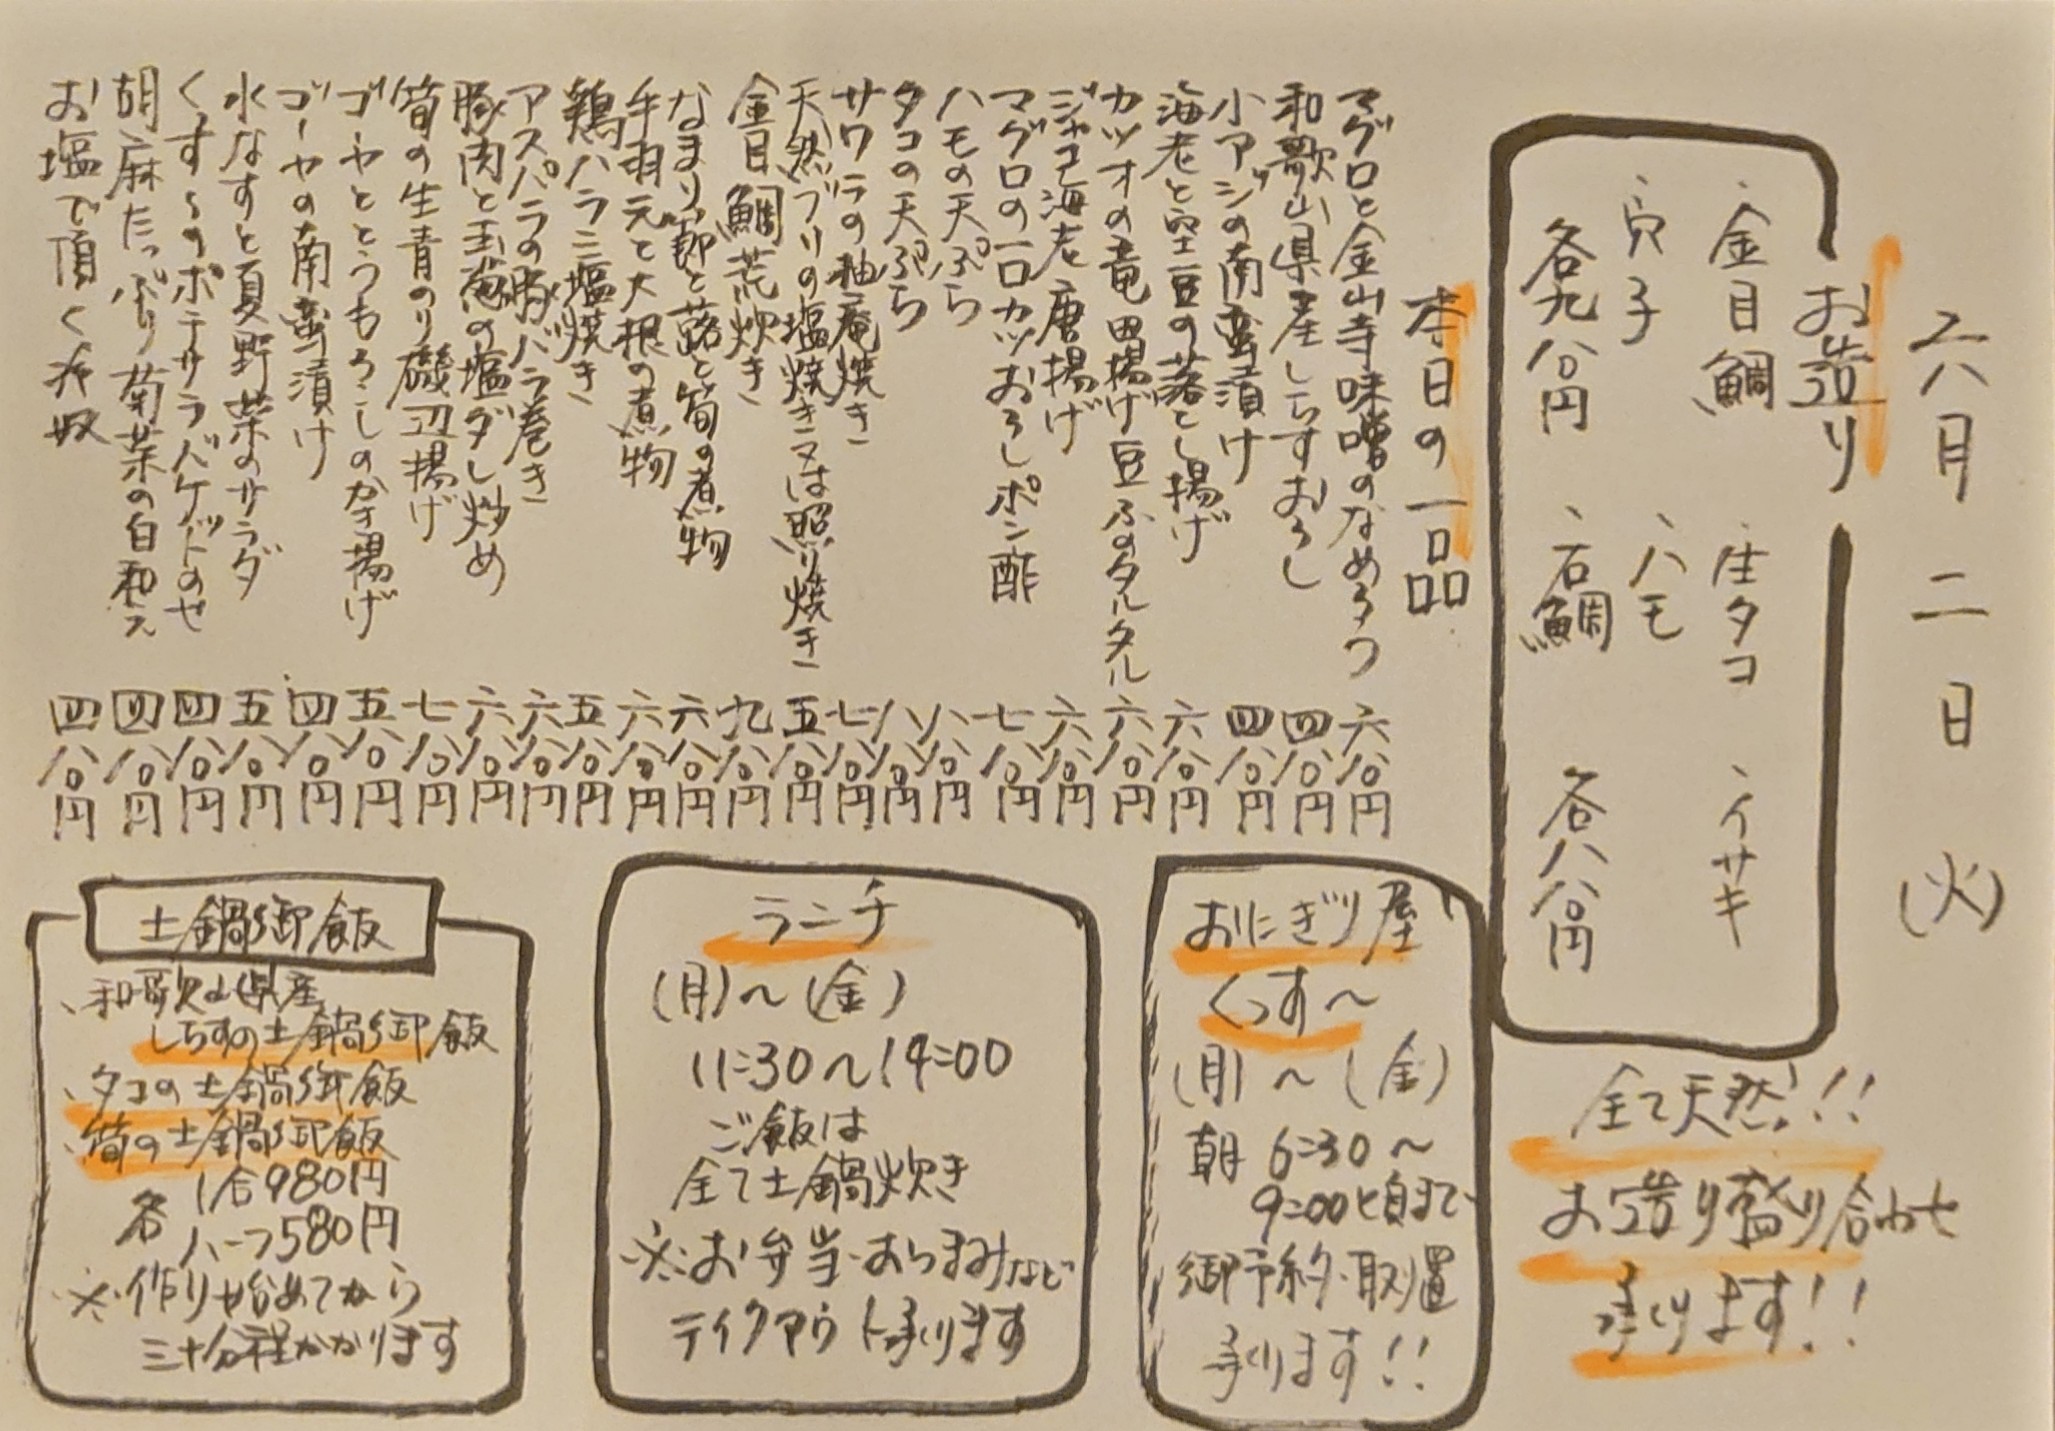 六月二日(火)
お造り
、金目鯛 、庄タコ 、イサキ
、穴子 、ハモ
各九八〇円 、石鯛 各八八〇円
全て天然!!
お造り盛り合わせ
承ります!!
本日の一品
マグロと金山寺味噌のなめろう 六八〇円
和歌山県産しらすおろし 四八〇円
小アジの南蛮漬け 四八〇円
海老と空豆の落とし揚げ 六八〇円
カツオの竜田揚げ豆ふのタルタル 六八〇円
ジャコ海老唐揚げ 六八〇円
マグロの一口カツおろしポン酢 七八〇円
ハモの天ぷら 八八〇円
タコの天ぷら 八八〇円
サワラの柚庵焼き 七八〇円
天然ブリの塩焼き又は照り焼き 五八〇円
金目鯛荒炊き 九八〇円
なまり節と蕗と筍の煮物 六八〇円
手羽元と大根の煮物 六八〇円
鶏ハラミ塩焼き 五八〇円
アスパラの豚バラ巻き 六八〇円
豚肉と玉葱の塩ダレ炒め 六八〇円
筍の生青のり磯辺揚げ 七八〇円
ゴーヤととうもろこしのかき揚げ 五八〇円
ゴーヤの南蛮漬け 四八〇円
水なすと夏野菜のサラダ 五八〇円
くすくすのポテサラバケットのせ 四八〇円
胡麻たっぷり菊菜の白和え 四八〇円
お塩で頂く冷奴 四八〇円
おにぎり屋
くっすー
(月)〜(金)
朝 6:30〜
9:00頃まで
御予約・取置
承ります!!
ランチ
(月)〜(金)
11:30〜14:00
ご飯は
全て土鍋炊き
※お弁当・おつまみなど
テイクアウト承ります
土鍋御飯
、和歌山県産
しらすの土鍋御飯
、タコの土鍋御飯
、筍の土鍋御飯
各 1合980円
ハーフ580円
※作り始めてから
三十分程かかります